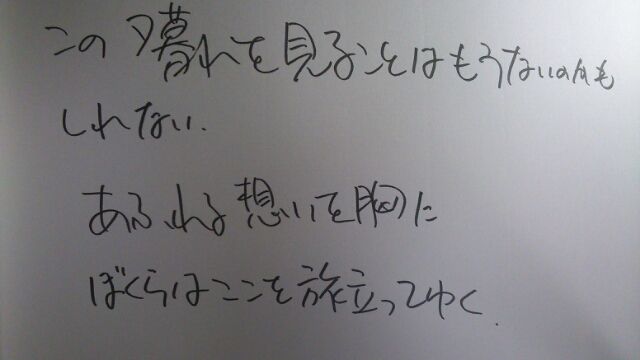 この夕暮れを見ることはもうないのかも
しれない.
あふれる想いを胸に
ぼくらはここを旅立ってゆく.